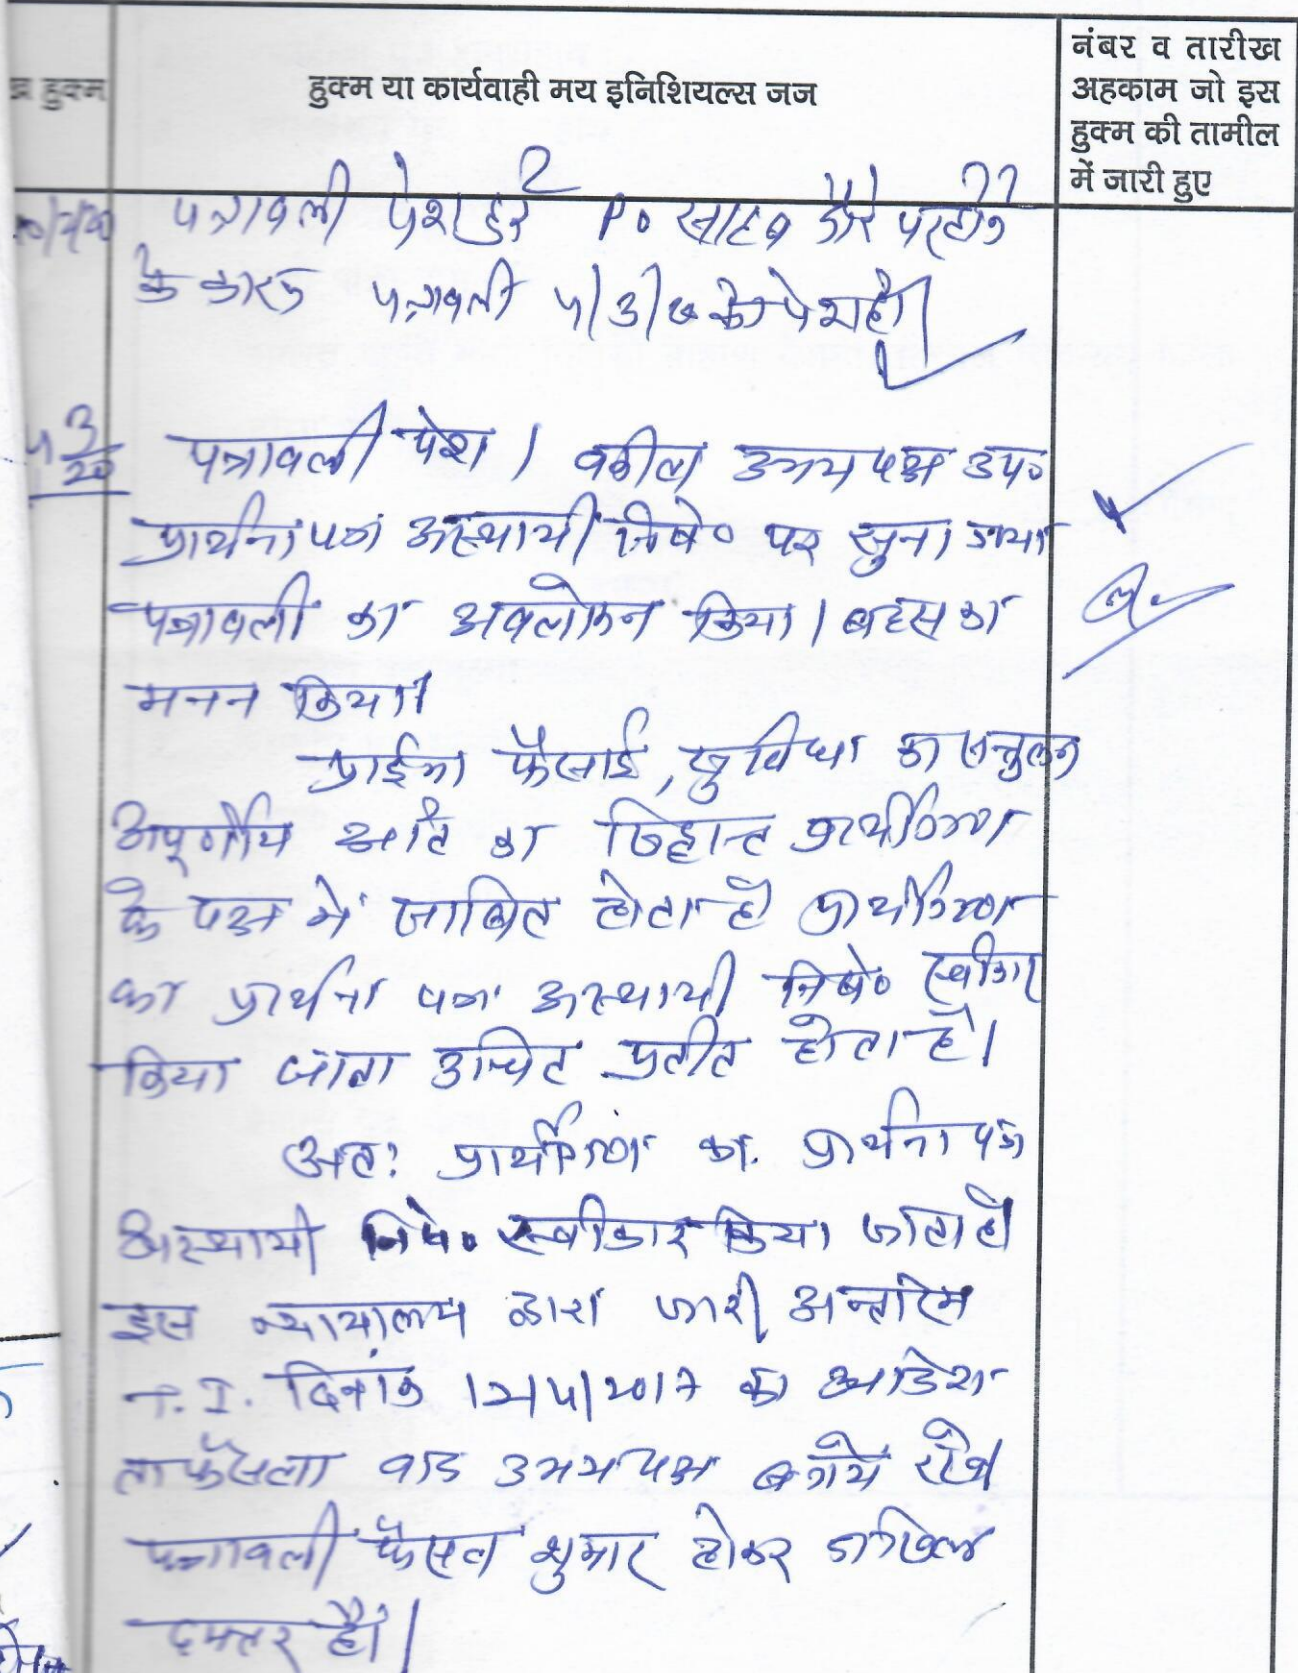 हुक्म
हुक्म या कार्यवाही मय इनिशियल्स जज
नंबर व तारीख
अहकाम जो इस
हुक्म की तामील
में जारी हुए
पत्रावली पेश हुई P० साहब दौरे पर होने
के कारण पत्रावली को पेश हो।
पत्रावली पेश। वकील उभयपक्ष उप०
प्रार्थना पत्र अस्थायी निषे० पर सुना गया
पत्रावली का अवलोकन किया। बहस का
मनन किया।
प्राईमा फैसाई, सुविधा का सन्तुलन
अपूर्णीय क्षति का सिद्धान्त प्रार्थीगण
के पक्ष में साबित होता है प्रार्थीगण
का प्रार्थना पत्र अस्थायी निषे० स्वीकार
किया जाना उचित प्रतीत होता है।
अतः प्रार्थीगण का प्रार्थना पत्र
अस्थायी निषे० स्वीकार किया जाता है
इस न्यायालय द्वारा जारी अन्तरिम
T.I. दिनांक 12/4/2017 का आदेश
ताफैसला वाद उभयपक्ष बनाये रखे
पत्रावली फैसल शुमार होकर दाखिल
दफ्तर हो।